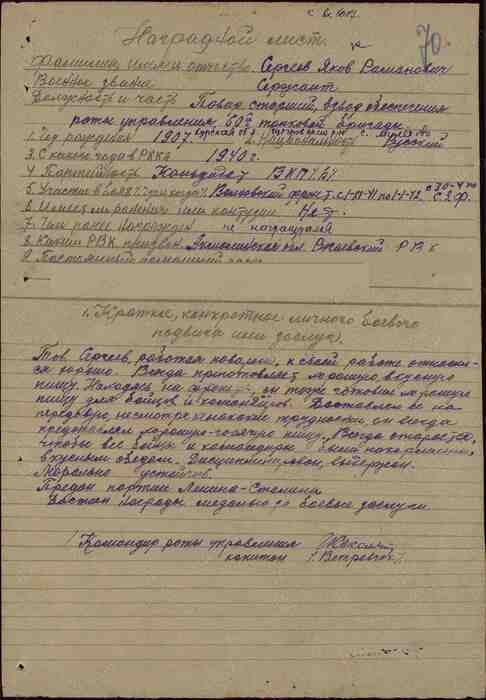 70.
Наградной лист.
Фамилия, имя и отчество Сергеев Яков Романович
Военное звание Сержант
Должность и часть Повар старший, взвод обеспечения
роты управления 60й танковой бригады
1. Год рождения 1907. Курская об. 2. Национальность Русский
3. С какого года в РККА 1940 г.
4. Партийность Кандидат ВКП/б/
5. Участие в боях Волховский фронт с 1-11-41 по 1-1-42
6. Имеет ли ранения или контузии Нет.
7. Чем ранее награжден не награждался
8. Каким РВК призван обл. РВК
9. Постоянный домашний
1. Краткое, конкретное личного боевого
подвига или заслуг.
Тов. Сергеев, работая поваром, к своей работе относит-
ся хорошо. Всегда приготовляет хорошую вкусную
пищу. Находясь на фронте, он также готовил хорошую
пищу для бойцов и командиров. Доставляя ее на
передовую, несмотря ни на какие трудности, он всегда
представлял хорошую горячую пищу. Всегда старается,
чтобы все бойцы и командиры были накормлены
вкусным обедом. Дисциплинирован, выдержан.
Морально устойчив.
Предан партии Ленина-Сталина.
Достоин награды медалью за боевые заслуги.
Командир роты управления
капитан /Петрович/.